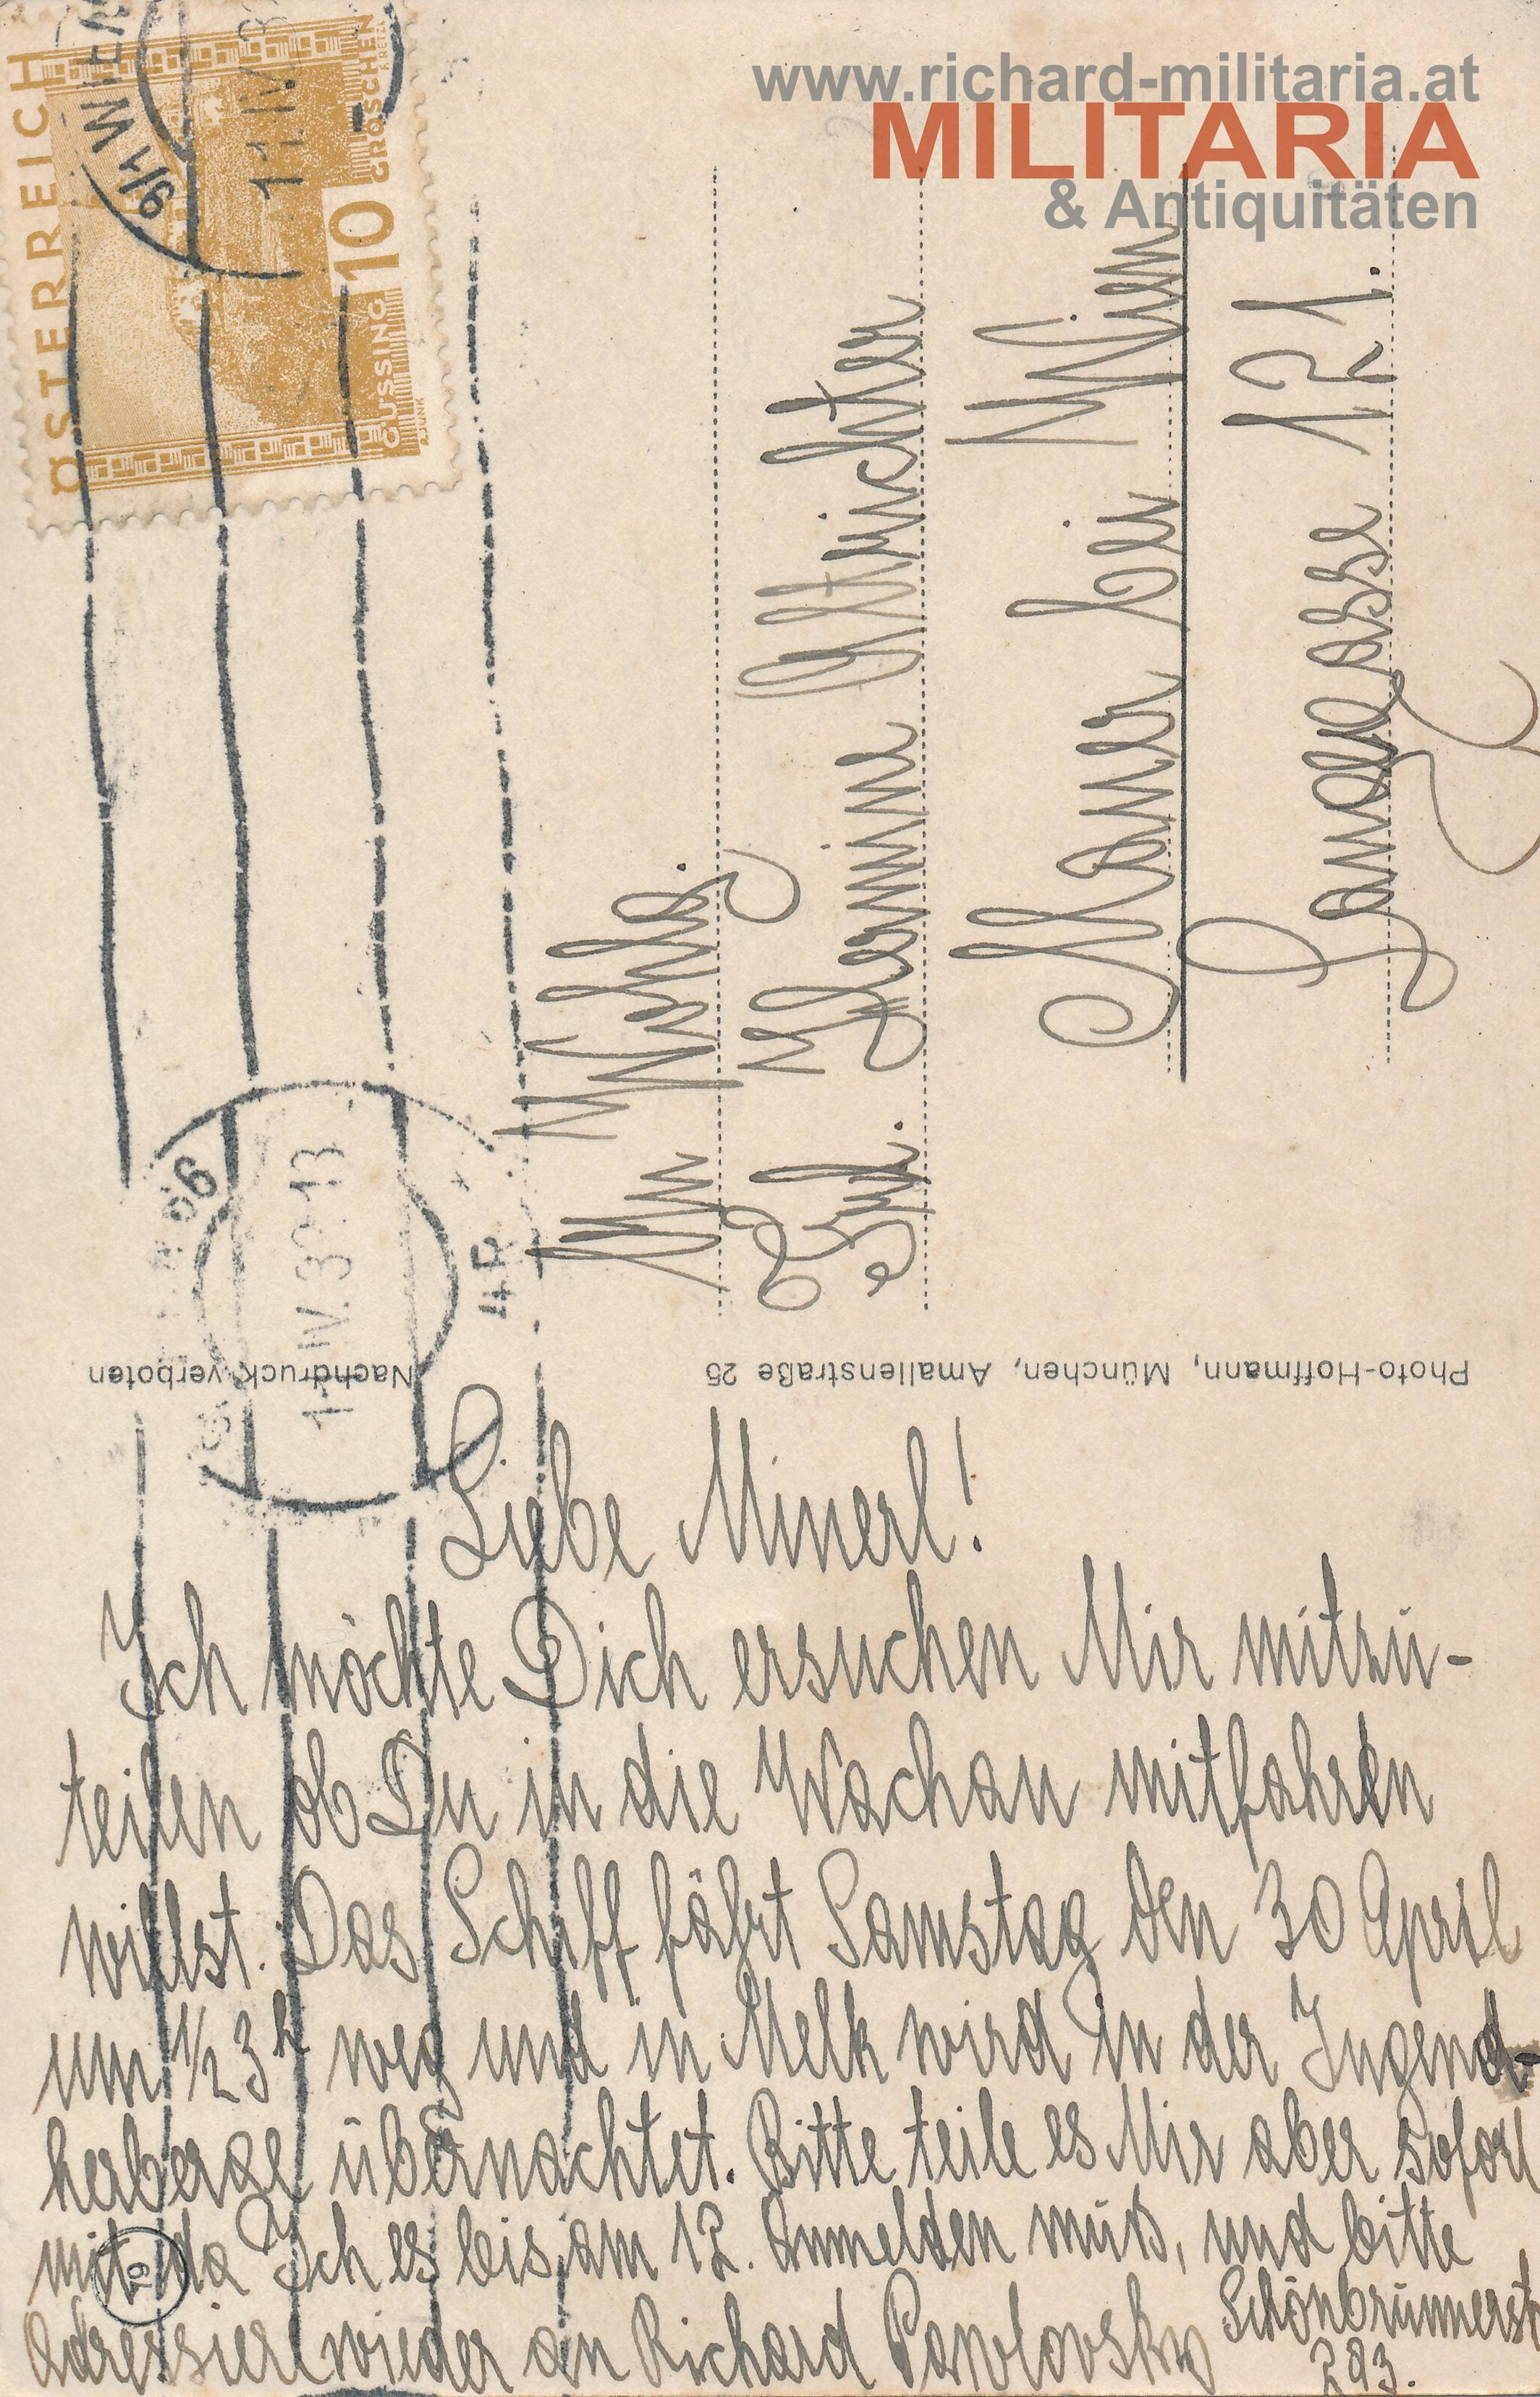 www.richard-militaria.at
MILITARIA
& Antiquitäten
ÖSTERREICH
10 GROSCHEN
GÜSSING
9/1 WIEN
11.IV.
An Wohlg.
Frl. Hermine Altrichter
Mauer bei Wien
Langegasse 121.
Nachdruck verboten
Photo-Hoffmann, München, Amalienstraße 25
Liebe Minerl!
Ich möchte Dich ersuchen Mir mitzu-
teilen ob Du in die Wachau mitfahren
willst. Das Schiff fährt Samstag den 30 April
um 1/2 3h weg und in Melk wird in der Jugend-
herberge übernachtet. Bitte teile es Mir aber sofort
mit da Ich es bis am 12. Anmelden muß, und bitte
Adressiere wieder an Richard Pawlovsky Schönbrunnerstr
293.